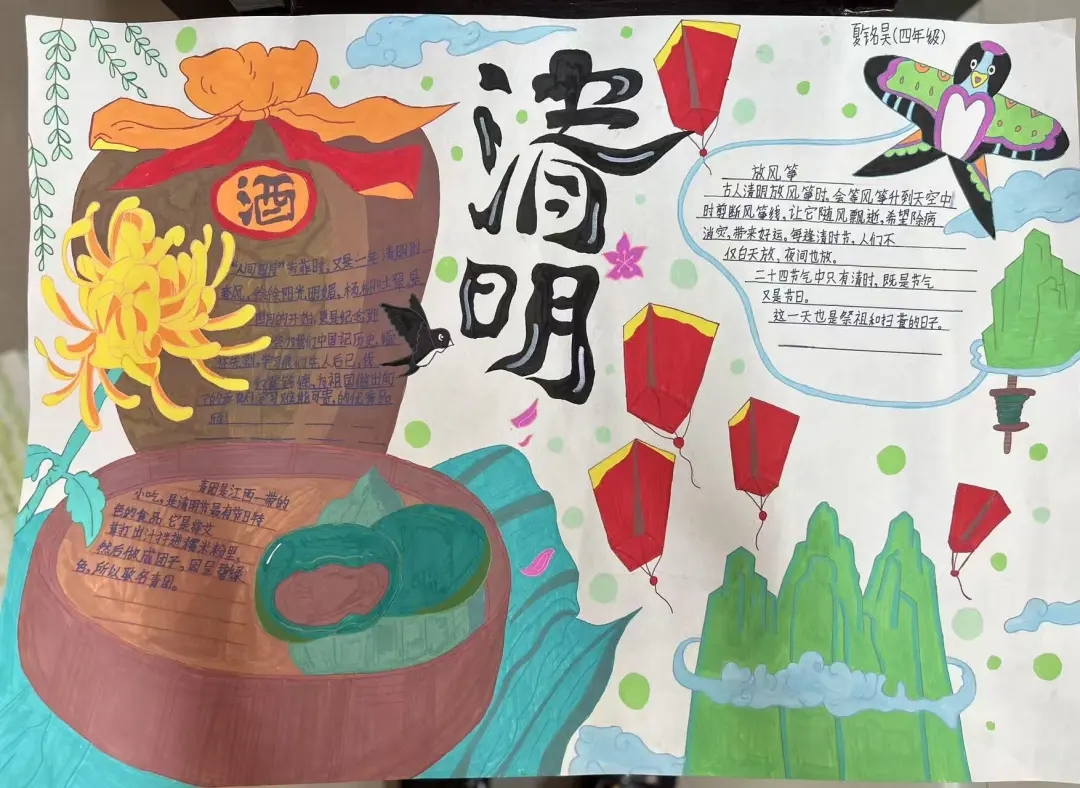 夏铭昊(四年级)
清明
酒
放风筝
古人清明放风筝时,会等风筝升到天空中
时剪断风筝线,让它随风飘逝,希望除病
消灾,带来好运。每逢清时节,人们不
仅白天放,夜间也放。
二十四节气中只有清时,既是节气
又是节日。
这一天也是祭祖和扫墓的日子。
"人间四月"芳菲时,又是一年清明时
春风,阳光明媚,杨柳吐翠是
四月的开始,更是纪念
我们中国记历史,
学习我们先人后已,
为祖国做出
了的贡献!学习难能可贵,的优秀品
质!
青团是江西一带的
小吃,是清明节最有节日特
色的食品,它是将艾
草打出汁拌进糯米粉里,
然后做成团子,因呈碧绿
色,所以取名青团。